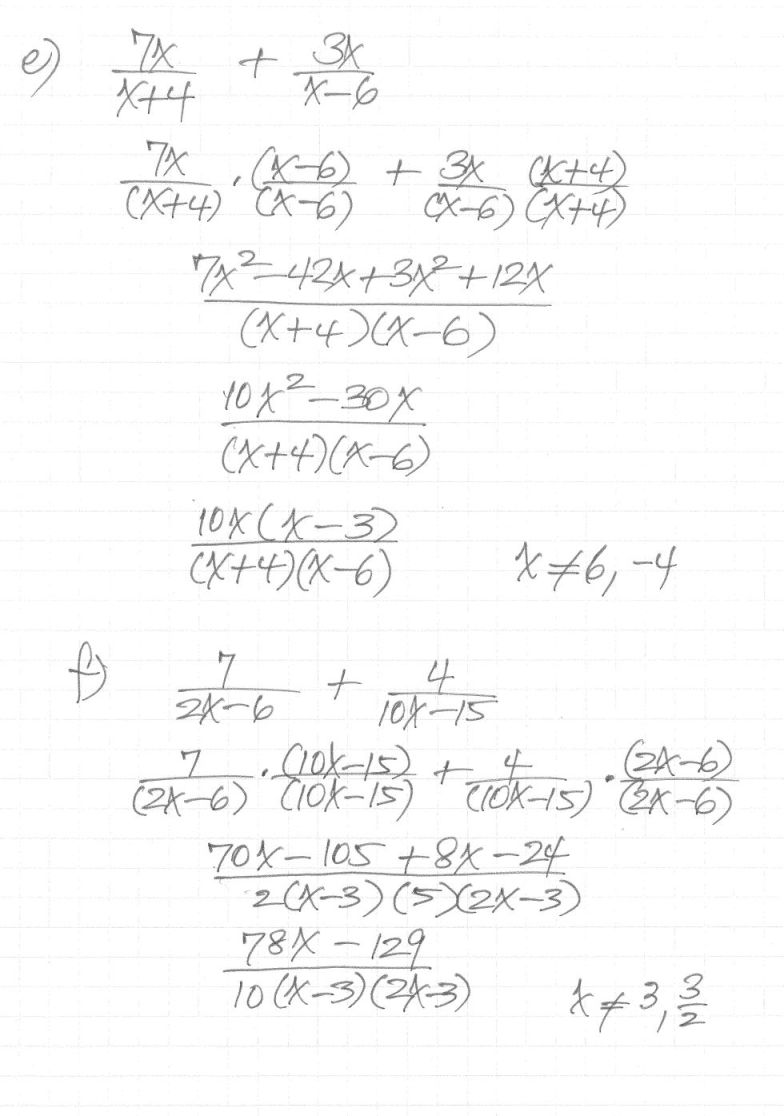 e) 7x/(x+4) + 3x/(x-6)
7x/(x+4) · (x-6)/(x-6) + 3x/(x-6) (x+4)/(x+4)
(7x²-42x+3x²+12x)/((x+4)(x-6))
(10x²-30x)/((x+4)(x-6))
10x(x-3)/((x+4)(x-6)) x≠6, -4
f) 7/(2x-6) + 4/(10x-15)
7/(2x-6) · (10x-15)/(10x-15) + 4/(10x-15) · (2x-6)/(2x-6)
(70x-105+8x-24)/(2(x-3)(5)(2x-3))
(78x-129)/(10(x-3)(2x-3)) x≠3, 3/2